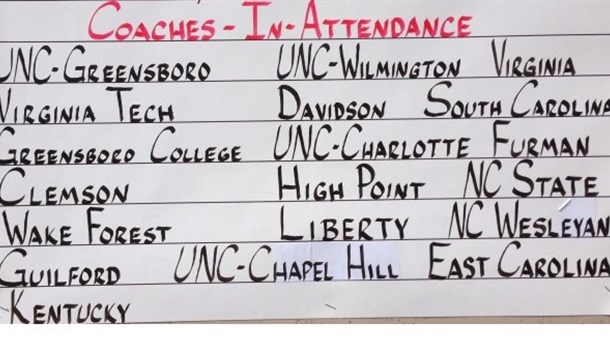 Coaches-In-Attendance
UNC-Greensboro UNC-Wilmington Virginia
Virginia Tech Davidson South Carolina
Greensboro College UNC-Charlotte Furman
Clemson High Point NC State
Wake Forest Liberty NC Wesleyan
Guilford UNC-Chapel Hill East Carolina
Kentucky